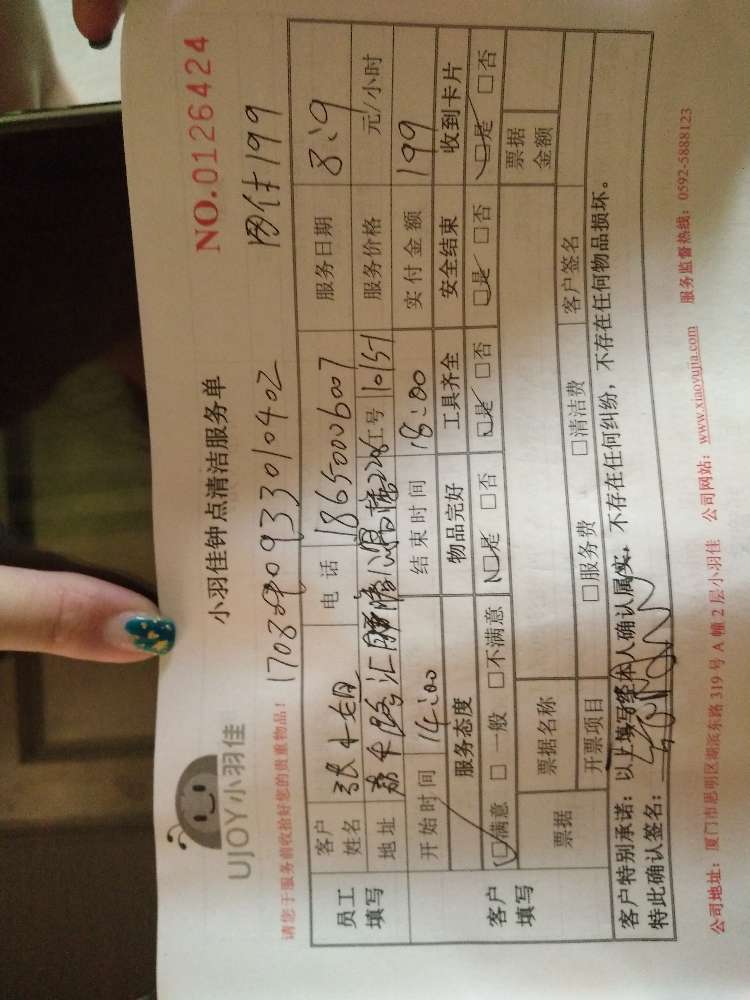 UJOY小羽佳
小羽佳钟点清洁服务单
NO.0126424
请您于服务前收拾好您的贵重物品!
网付199
员工填写
客户姓名 张小姐 电话 18650006007 服务日期 8:9
地址 工号 10157 服务价格 元/小时
开始时间 14:00 结束时间 18:00 实付金额 199
客户填写
服务态度 物品完好 工具齐全 安全结束 收到卡片
□满意 □一般 □不满意 □是 □否 □是 □否 □是 □否 □是 □否
票据 票据名称 票据金额
开票项目 □服务费 □清洁费 客户签名
客户特别承诺:以上填写经本人确认属实,不存在任何纠纷,不存在任何物品损坏。
特此确认签名:
公司地址:厦门市思明区湖滨东路319号A幢2层小羽佳 公司网站:www.xiaoyujia.com 服务监督热线:0592-5888123